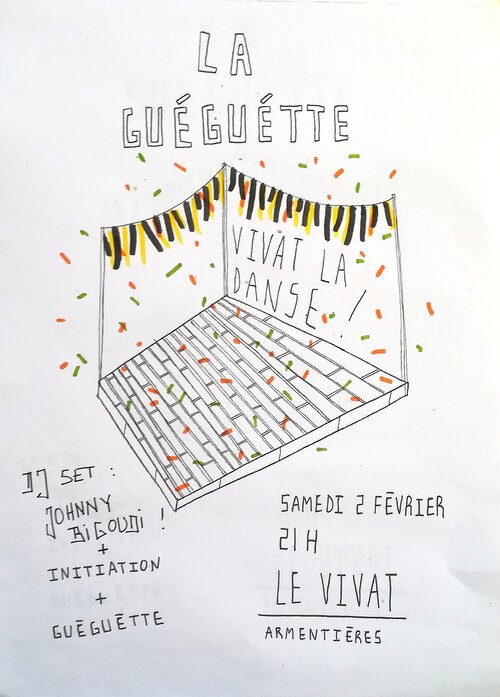 LA
GUÉGUÉTTE
VIVAT LA
DANSE !
DJ SET :
JOHNNY
BIGOUDI !
+
INITIATION
+
GUÉGUÉTTE
SAMEDI 2 FÉVRIER
21 H
LE VIVAT
ARMENTIÉRES